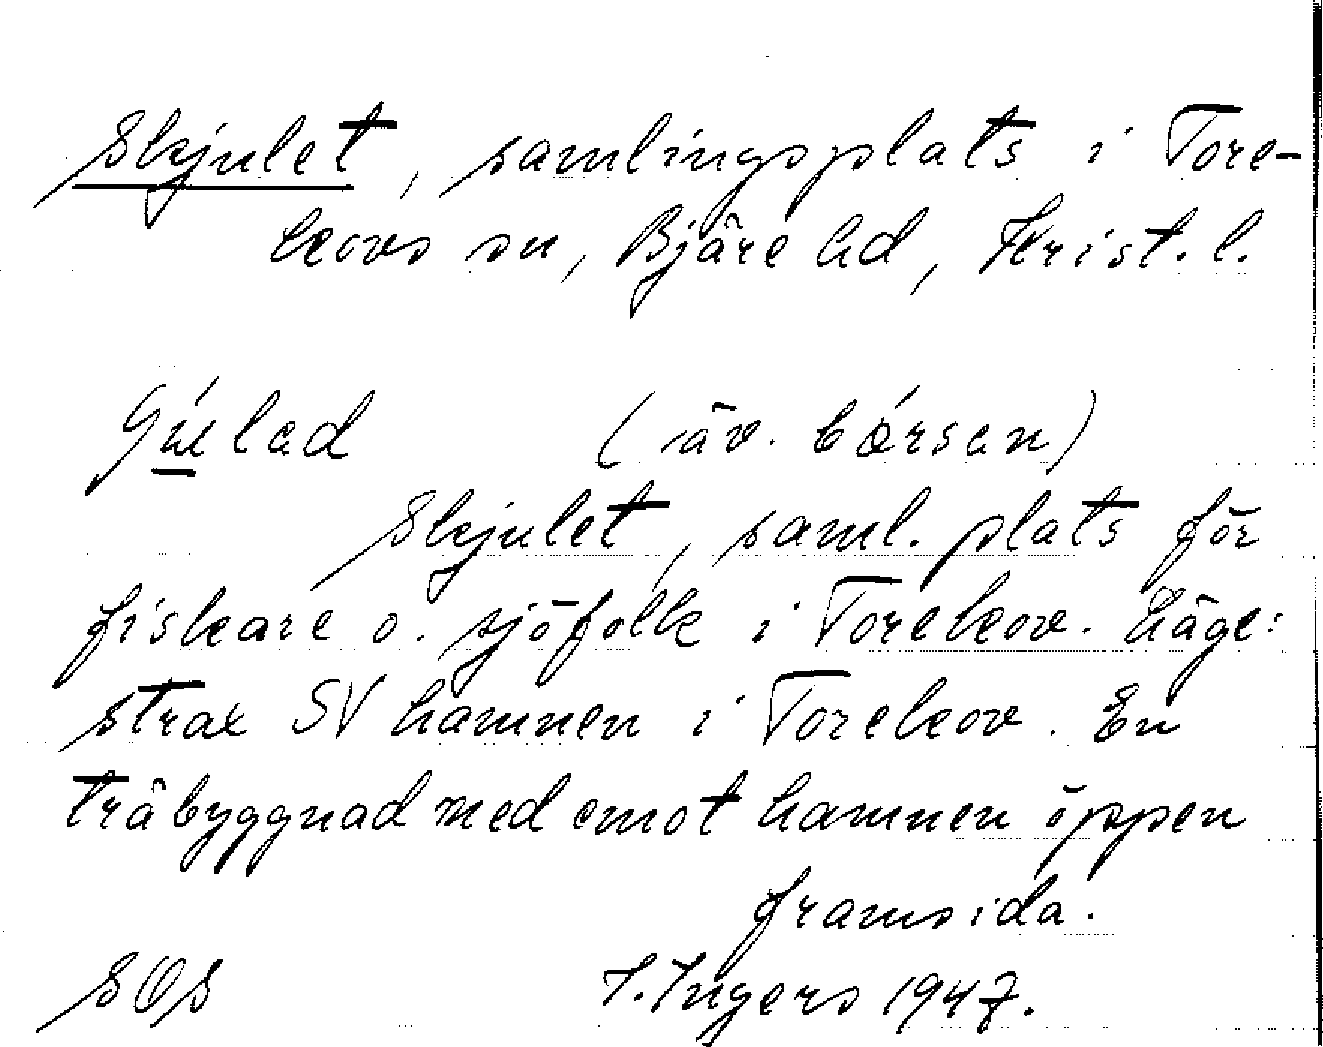 Skjulet, samlingsplats i Tore-
kovs sn, Bjäre hd, Krist. l.
(äv. börsen)
Skjulet, saml. plats för
fiskare o. sjöfolk i Torekov. Läge:
strax SV hamnen i Torekov. En
träbyggnad med emot hamnen öppen
framsida.
SOS I. Ingers 1947.